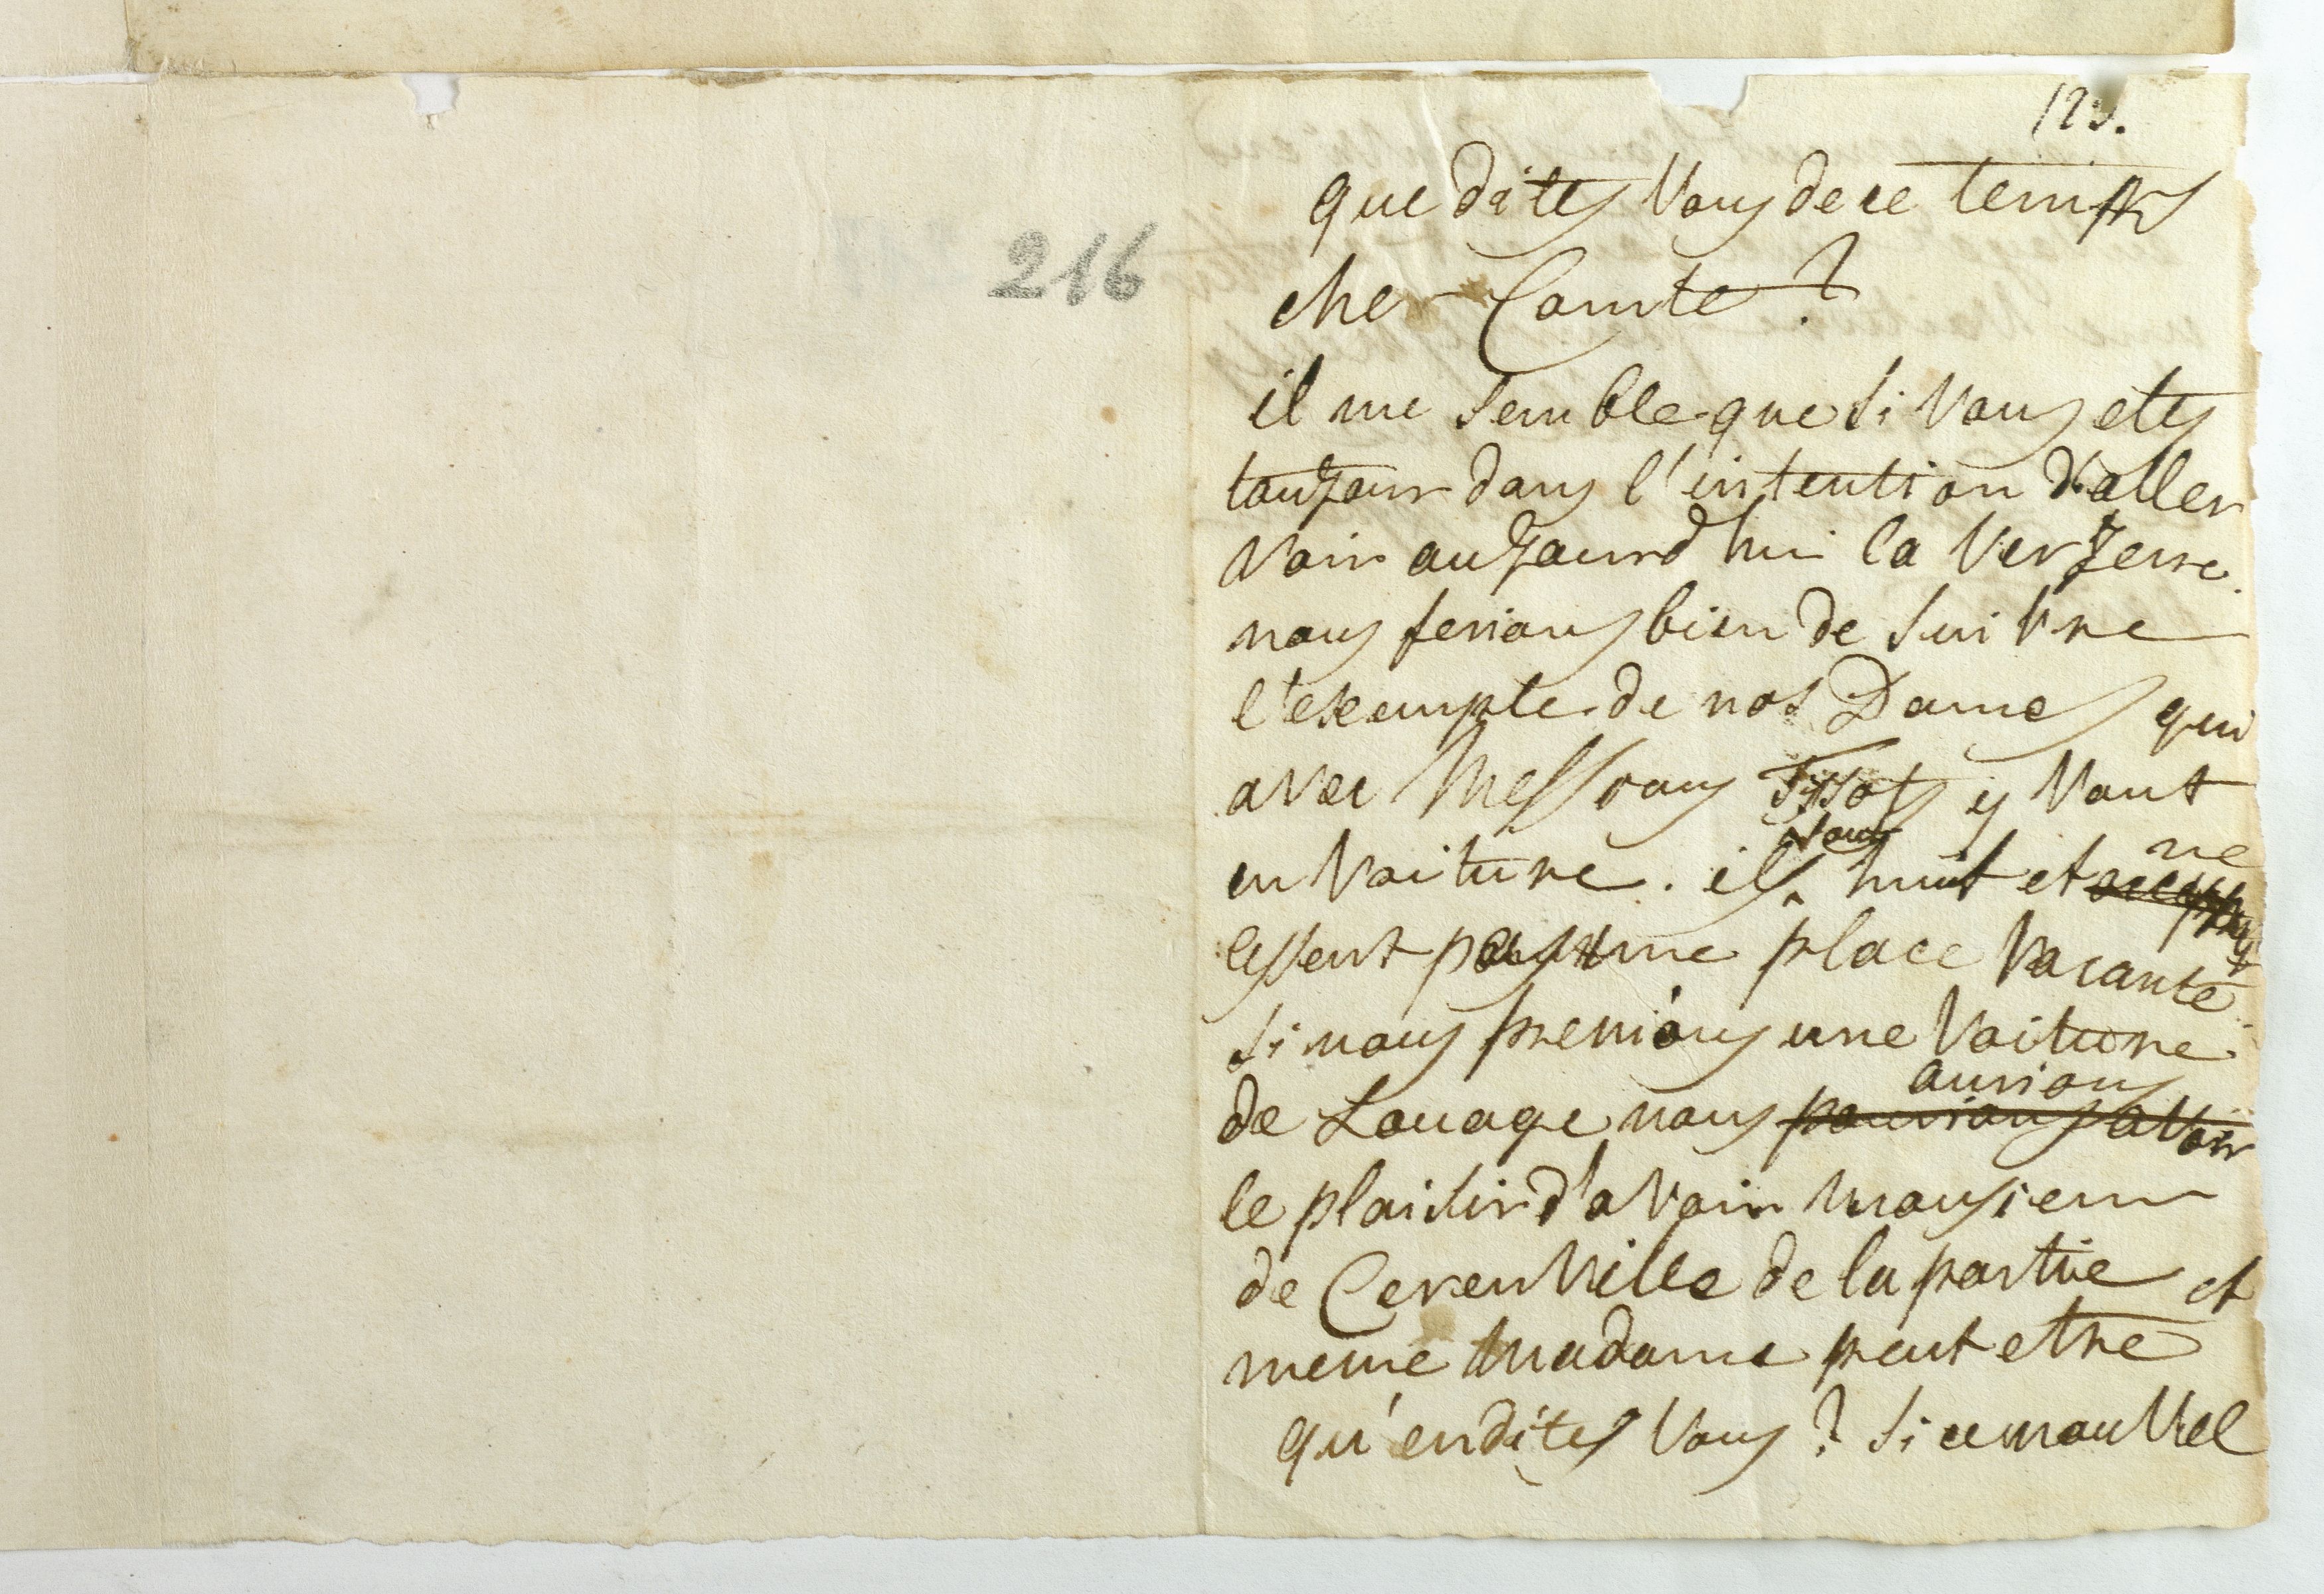 216
que dites vous de ce temps
cher Comte ?
il me semble que si vous etes
toujour dans l'intention d'aller
voir aujourd'hui la
nous ferions bien de suivre
l'exemple de nos Dames qui
avec Messrs Tissots y vont
en voiture. ils vont huit et ne
laissent pas une place vacante
si nous prenions une voiture
de Louage nous pourrions avoir aurions
le plaisir d'avoir monsieur
de Cerenville de la partie et
meme madame peut etre
qu'en dites vous ? si ce nouvel